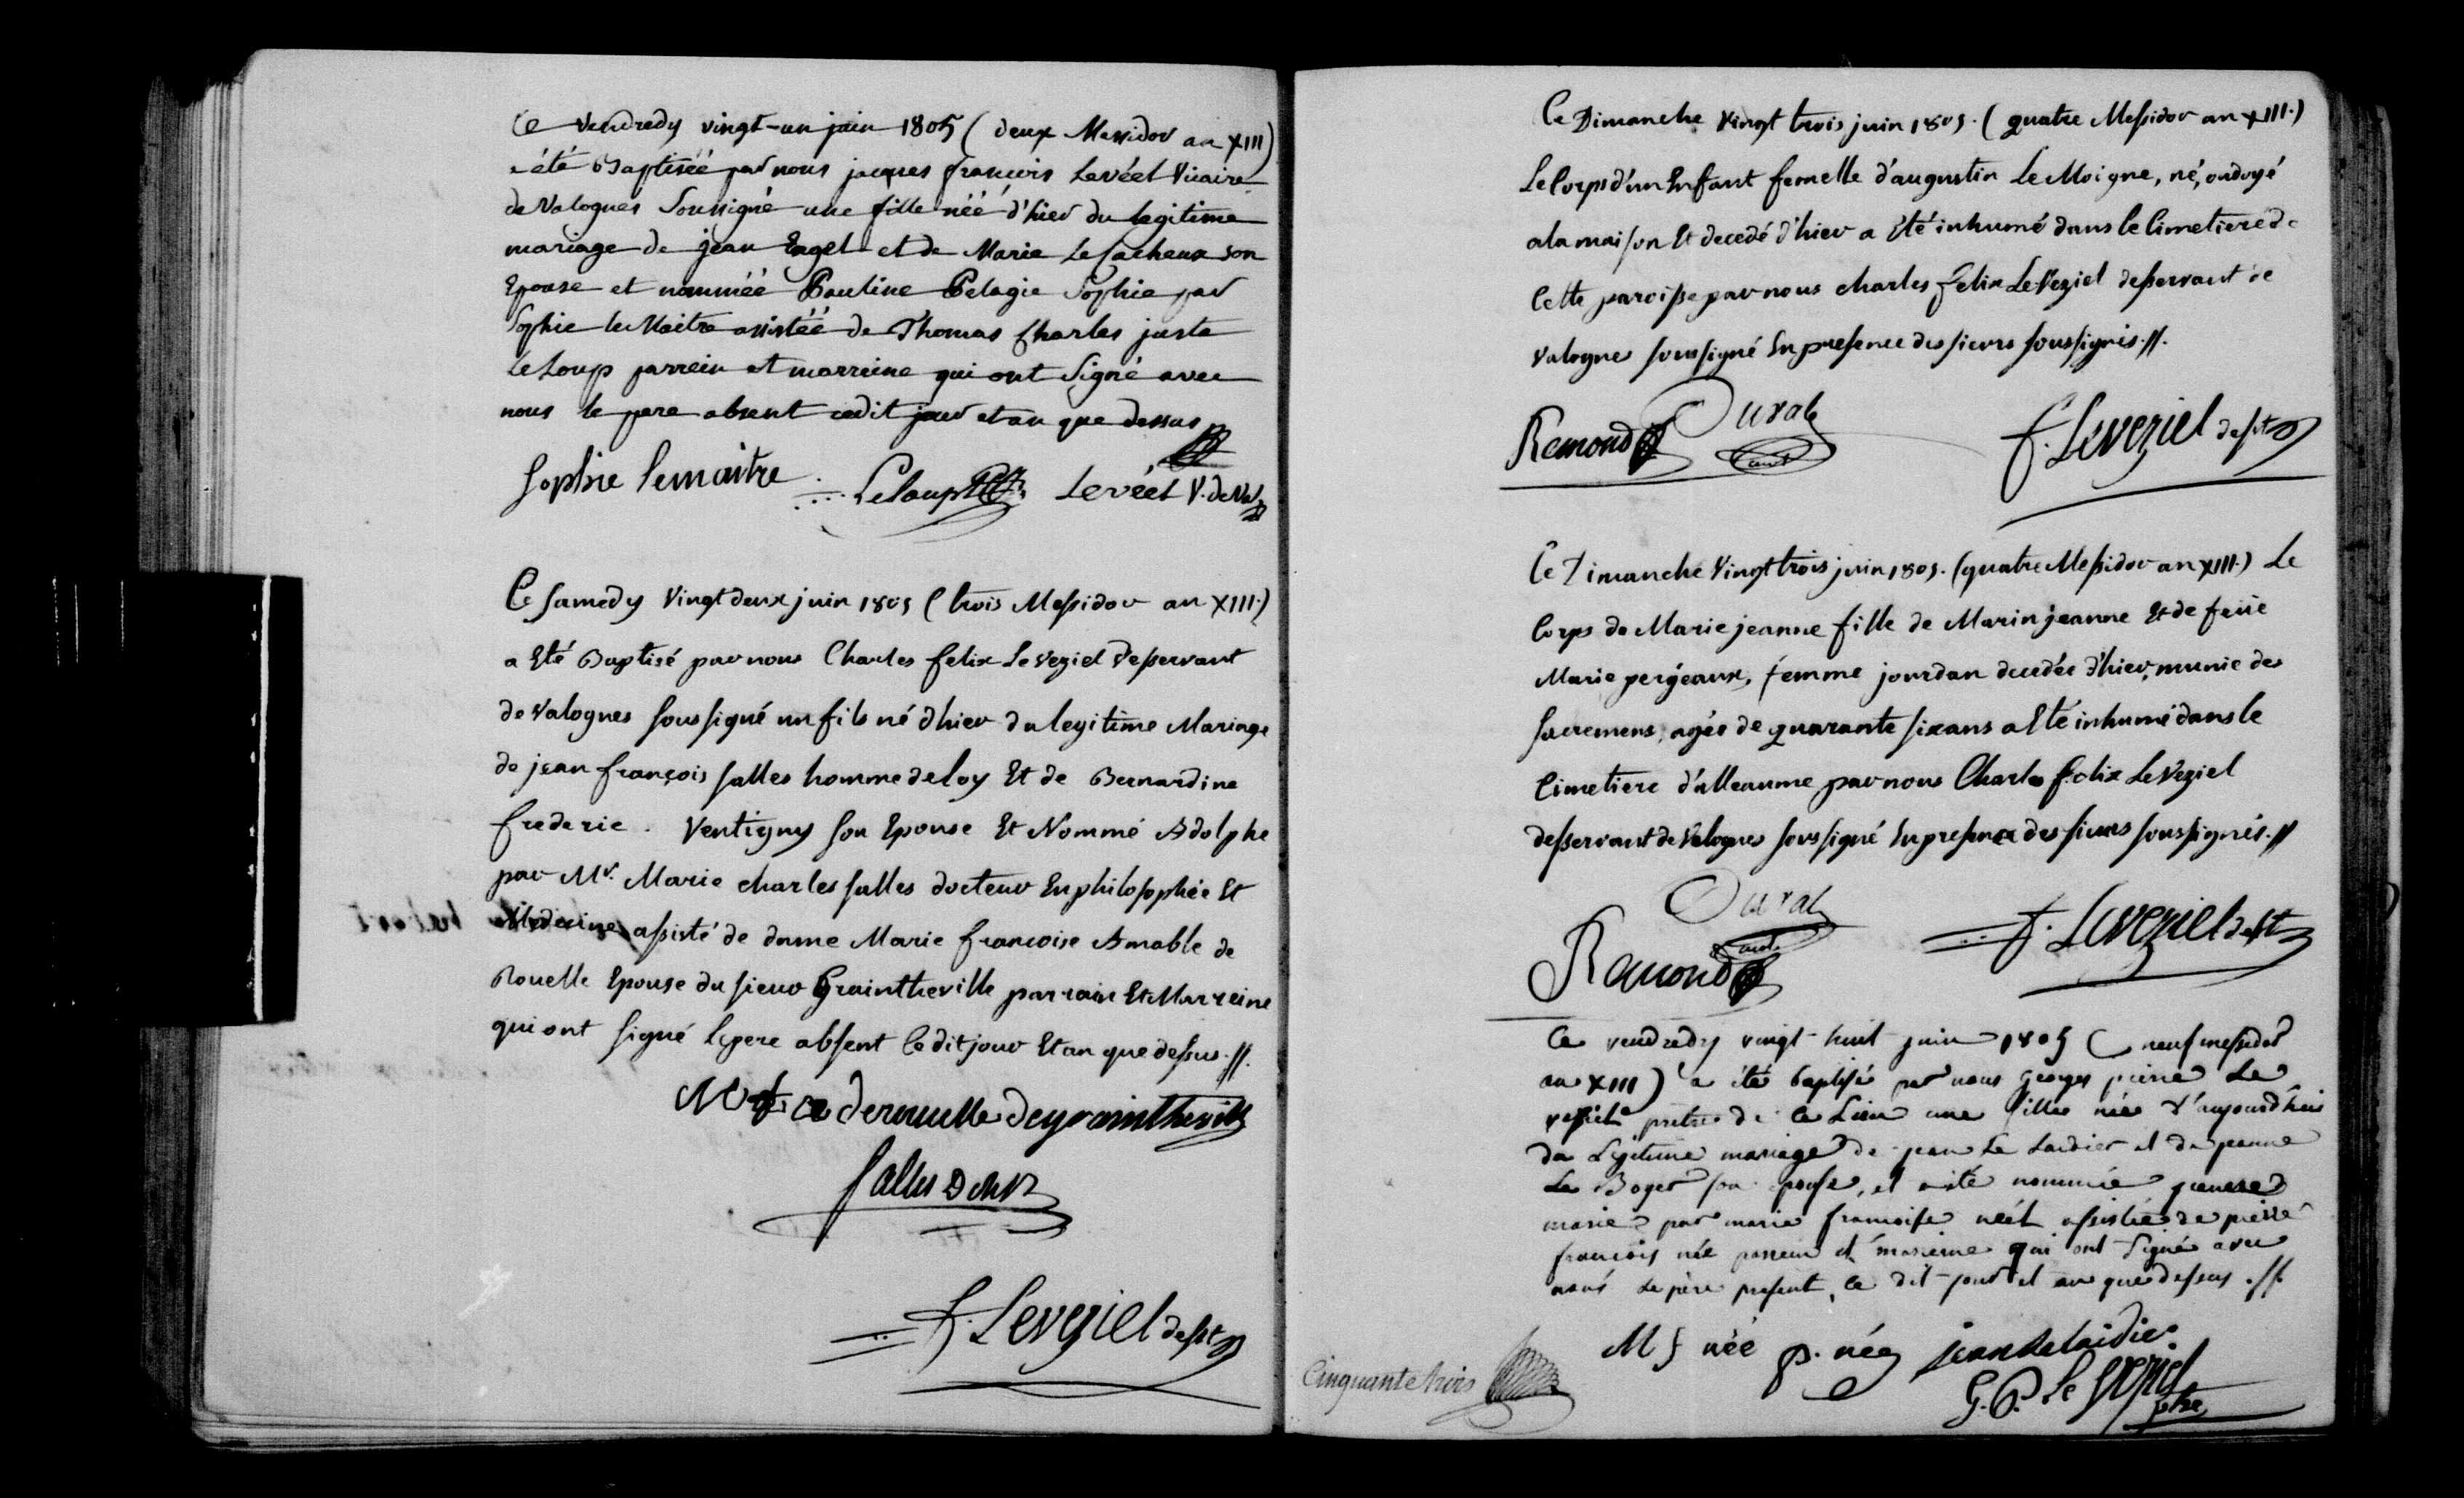 Ce vendredy vingt-un juin 1805 (deux Messidor an XIII)
a été Baptisée par nous jacques francois Levéel Vicaire
de Valognes Soussigné une fille néé d'hier du legitime
mariage de jean Engel et de Marie Le Cacheux son
Epouse et nommée Pauline Pelagie Sophie par
Sophie le Maitre assistéé de Thomas Charles juste
Le Loup parrein et marreine qui ont Signé avec
nous le pere absent cedit jour et an que dessus
Sophie lemaitre Leloup Levéel V. de Val
Ce Samedy Vingt deux juin 1805 (trois Messidor an XIII.)
a Eté Baptisé par nous Charles felix Leveziel Desservant
de Valognes soussigné un fils né d'hier du legitime Mariage
de jean françois salles homme de loy Et de Bernardine
frederic . Ventigny son Epouse Et Nommé Adolphe
par Mr. Marie charles salles docteur En philosophie Et
Medecine assisté de dame Marie francoise Amable de
Rouelle Epouse du sieur Graintheville parrain Et Marreine
qui ont signé le pere absent Ce dit jour Et an que dessus.//.
derouelle degraintheville
Salles D
f. Leveziel desst
Ce Dimanche Vingt trois juin 1805. (quatre Messidor an XIII.)
Le Corps d'un Enfant femelle d'augustin Le Moigne, né, ondoyé
a la maison Et decedé d'hier a été inhumé dans le Cimetiere de
Cette paroisse par nous charles felix LeVeziel desservant de
Valognes soussigné En presence des sieurs soussignés.//.
Remond Duval
f. Leveziel desst
Ce Dimanche Vingt trois juin 1805. (quatre Messidor an XIII.) Le
Corps de Marie jeanne fille de Marin jeanne Et de feüe
Marie pergeaux, femme jourdan decedée d'hier, munie des
sacremens, agée de quarante six ans a Eté inhumé dans le
Cimetiere d'alleaume par nous Charles felix LeVeziel
desservant de Valognes soussigné En presence des sieurs soussignés.//
Duval
Remond f. Leveziel desst
Ce vendredy vingt-huit juin 1805 (neuf messidor
an XIII) a été baptisé par nous Georges pierre Le
veziel pretre de ce Lieu une fille née d'aujourd'hui
du Légitime mariage de jean Le Laidier et de jeanne
Le Boyer son epouse, et a été nommée
marie par marie francoise néel assistée de pierre
françois née parrein et marreine qui ont Signé avec
nous le père présent, ce dit jour et an que dessus.//.
M f née p. née jean le laidier
G. P. Le Veziel
ptre
Cinquante trois